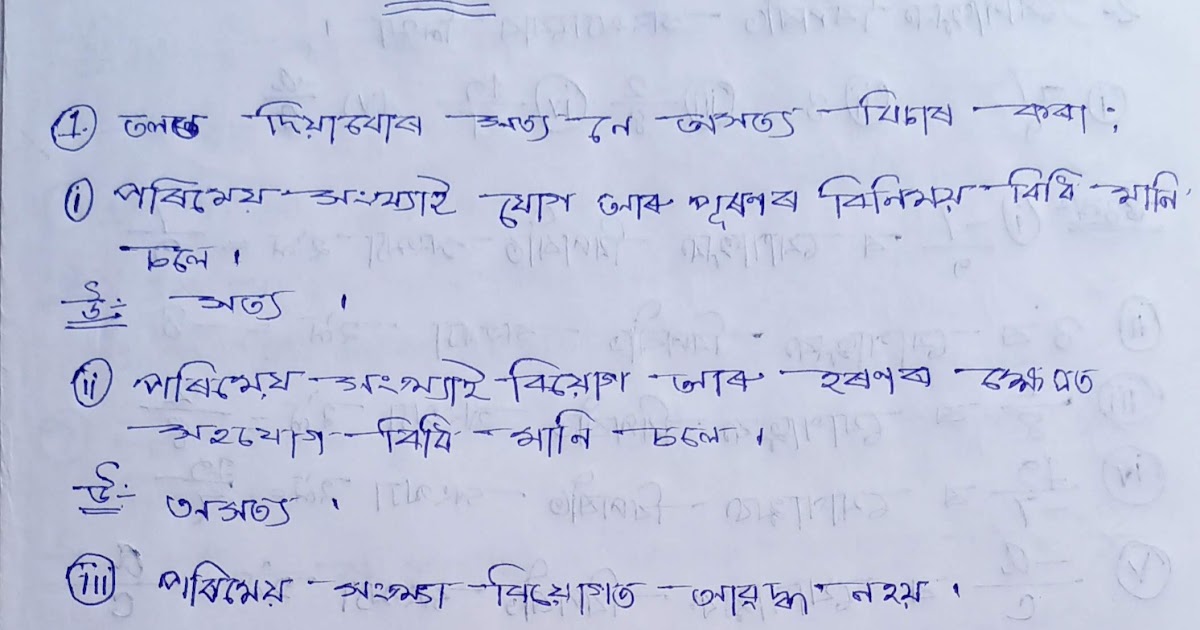 1. তলত দিয়াবোৰ সত্য নে অসত্য বিচাৰ কৰা:
i পৰিমেয় সংখ্যাই যোগ আৰু পূৰণৰ বিনিময় বিধি মানি
চলে।
উ: সত্য ।
ii পৰিমেয় সংখ্যাই বিয়োগ আৰু হৰণৰ ক্ষেত্ৰত
সহযোগ বিধি মানি চলে।
উ: অসত্য ।
iii পৰিমেয় সংখ্যা বিয়োগত আৱদ্ধ নহয় ।